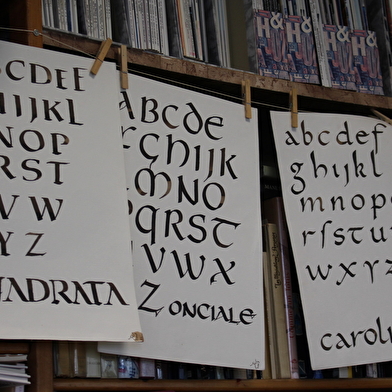 BCDEF
HIJKL
NOP
RST
VW
YZ
ADRATA
ABCDE
FGHIJK
LMNO
PQRST
UVWX
Z ONCIALE
abcdef
ghijkl
mnop
rſstu
wxyz
carolin
H&
H&
H&